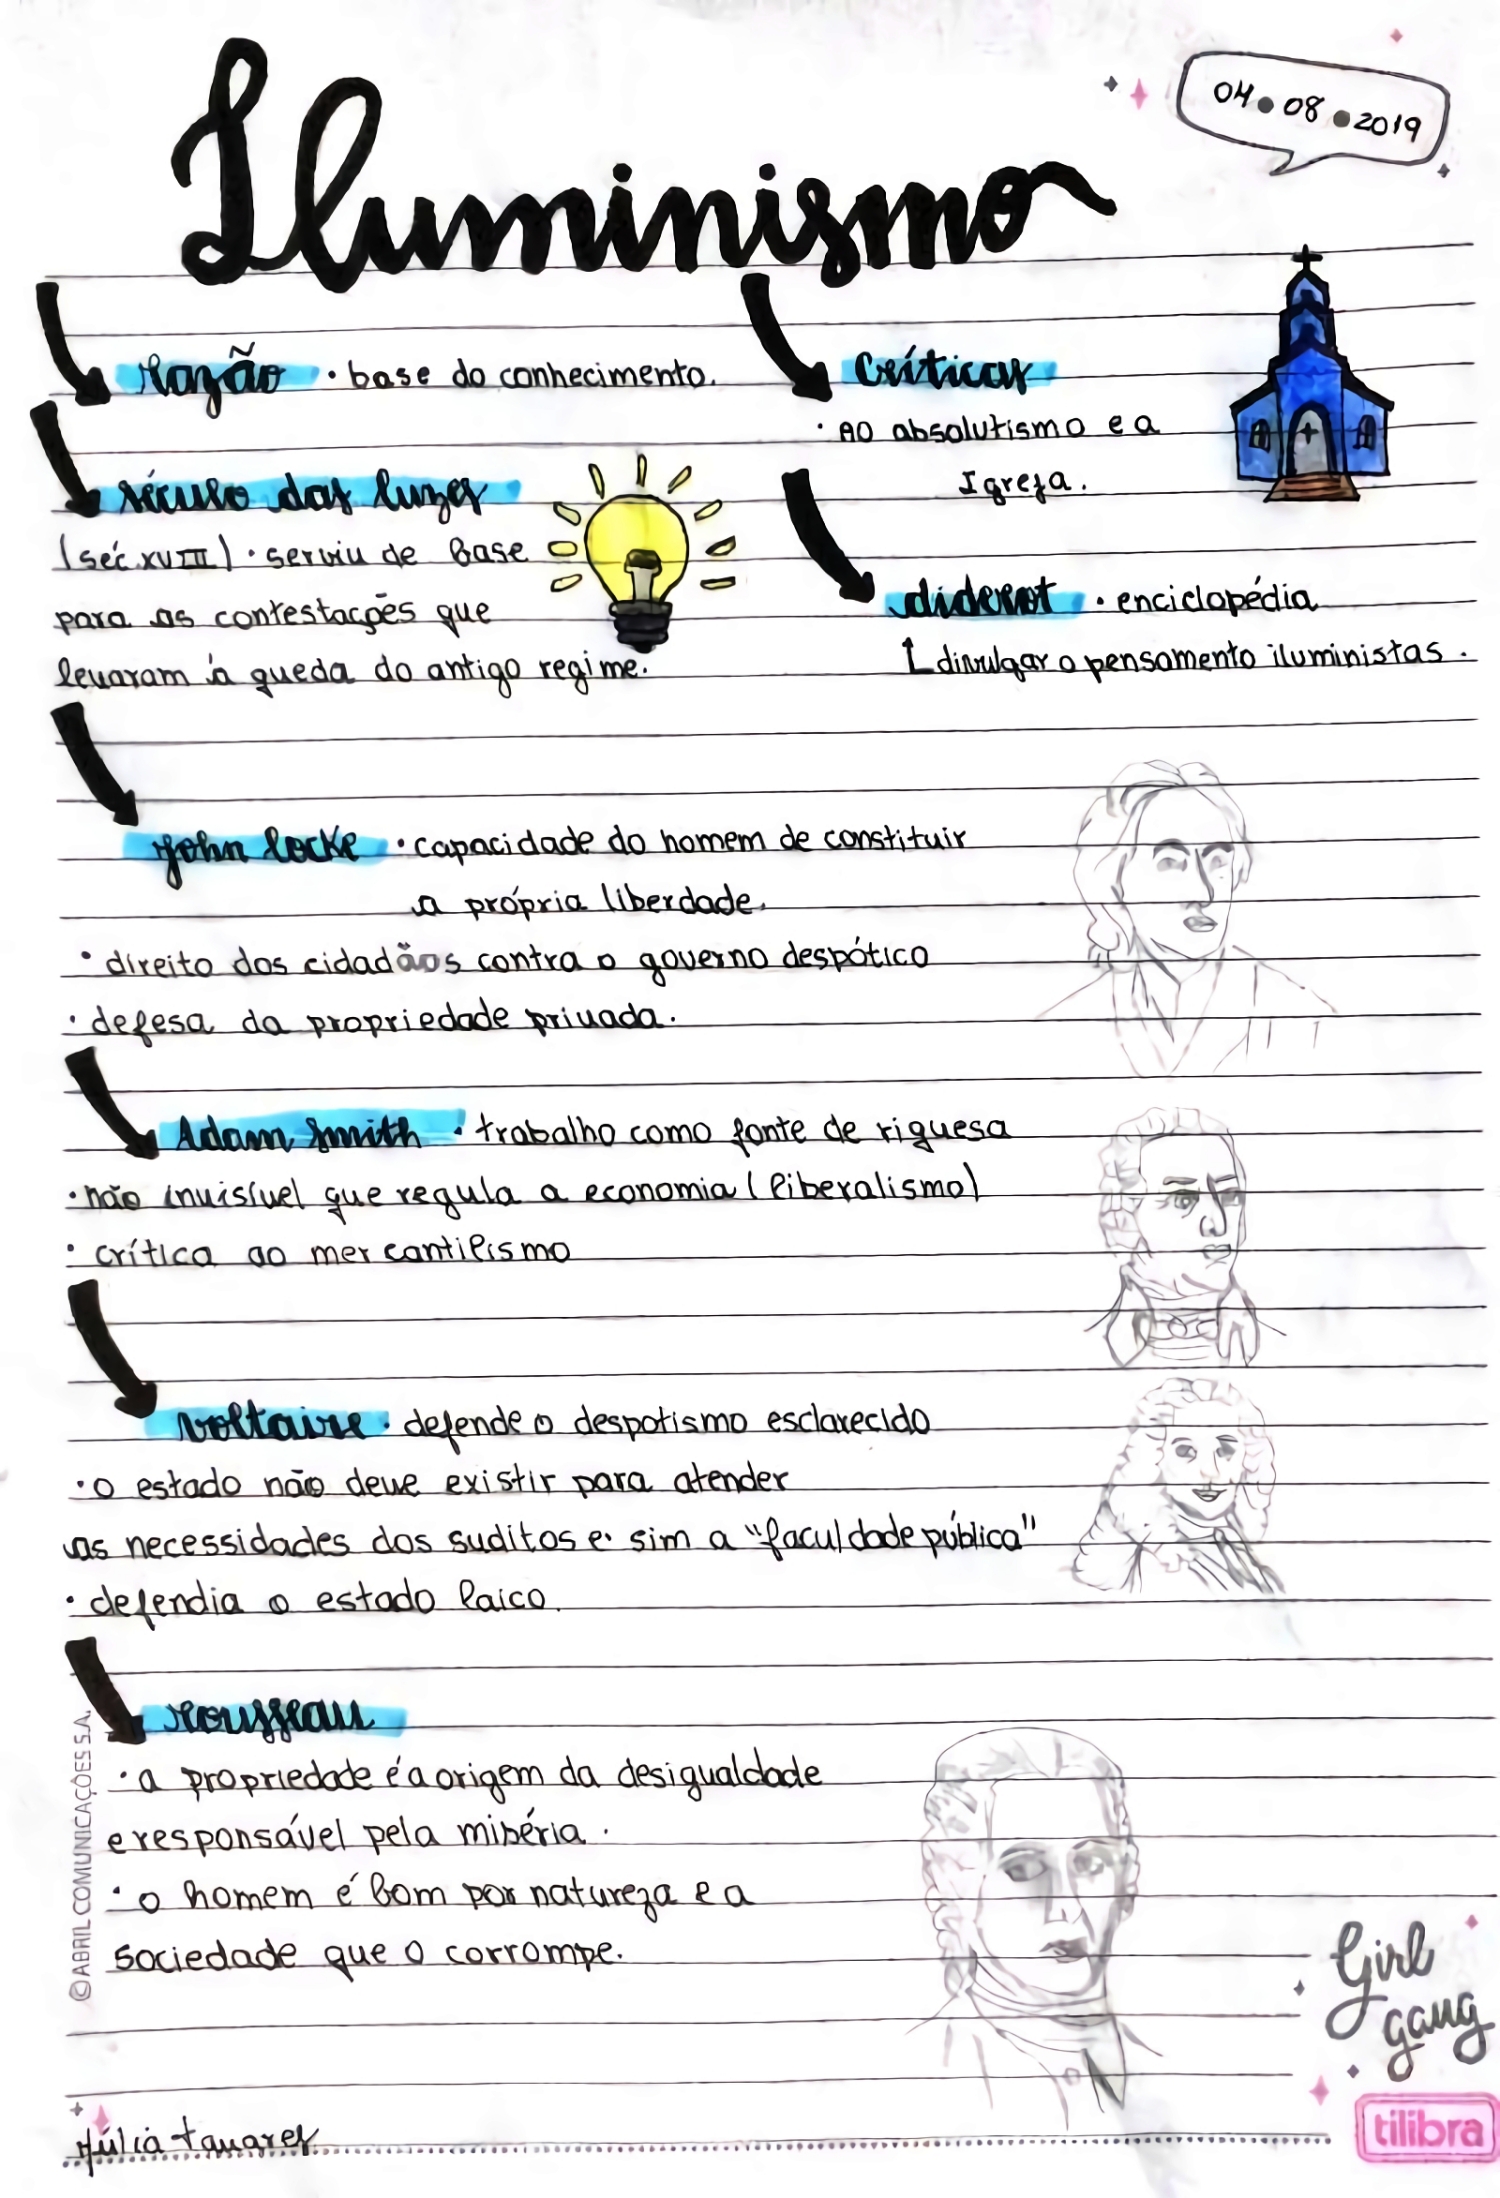 04 • 08 • 2019
Iluminismo
Razão • base do conhecimento.
século das luzes
(séc. XVIII) • serviu de base
para as contestações que
levaram à queda do antigo regime.
Críticas
• AO absolutismo e a
Igreja.
diderot • enciclopédia
divulgar o pensamento iluministas.
john locke • capacidade do homem de constituir
a própria liberdade.
• direito dos cidadãos contra o governo despótico
• defesa da propriedade privada.
Adam Smith • trabalho como fonte de riquesa
• mão invisível que regula a economia (liberalismo)
• crítica ao mercantilismo
voltaire • defende o despotismo esclarecido
• o estado não deve existir para atender
as necessidades dos suditos e sim a "faculdade pública"
• defendia o estado laico.
rousseau
• a propriedade é a origem da desigualdade
e responsável pela miséria.
• o homem é bom por natureza e a
sociedade que o corrompe.
©ABRIL COMUNICAÇÕES S.A.
Girl
gang
tilibra
Júlia tavares